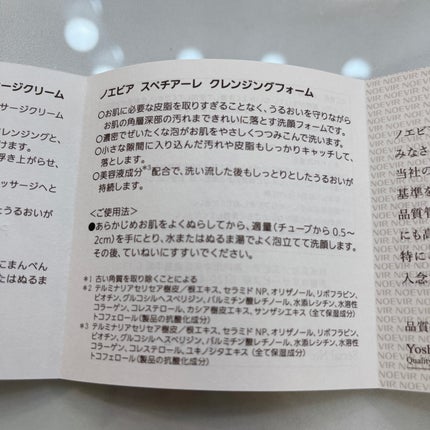 ージクリーム
ッサージクリーム
ンジングと、
けます。
浮き上がらせ、
ッサージへと
たうるおいが
こまんべん
ノエビア スペチアーレ クレンジングフォーム
○お肌に必要な皮脂を取りすぎることなく、うるおいを守りながら
お肌の角層深部の汚れまできれいに落とす洗顔フォームです。
○濃密でぜいたくな泡がお肌をやさしくつつみこんで洗います。
○小さな隙間に入り込んだ汚れや皮脂もしっかりキャッチして、
落とします。
○美容液成分*3配合で、洗い流した後もしっとりとしたうるおいが
持続します。
<ご使用法>
●あらかじめお肌をよくぬらしてから、適量(チューブから0.5~
2cm)を手にとり、水またはぬるま湯でよく泡立てて洗顔します。
その後、ていねいにすすいでください。
*1 古い角質を取り除くことによる
*2 テルミナリアセリセア樹皮/根エキス、セラミド NP、オリザノール、リボフラビン、
ビオチン、グルコシルヘスペリジン、パルミチン酸レチノール、水添レシチン、水溶性
コラーゲン、コレステロール、カシア樹皮エキス、サンザシエキス (全て保湿成分)
トコフェロール(製品の抗酸化成分)
*3 テルミナリアセリセア樹皮/根エキス、セラミド NP、オリザノール、リボフラビン、
ビオチン、グルコシルヘスペリジン、パルミチン酸レチノール、水添レシチン、水溶性
コラーゲン、コレステロール、ユキノシタエキス (全て保湿成分)
トコフェロール(製品の抗酸化成分)
NOEVIR NOEVIR
ノエビア
みなさ
当社の
基準を
品質管
にも高
特にこ
人念
品質
Yosh
Quality
NOEVIR NOEVIR